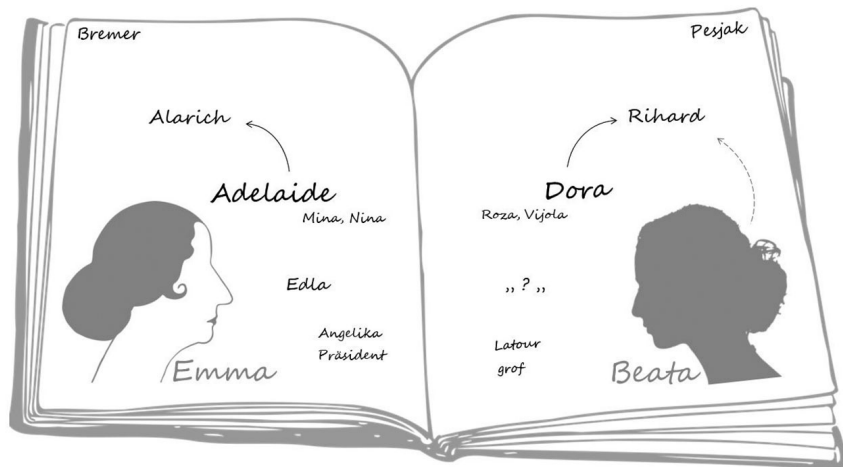 Bremer
Alarich
Adelaide
Mina, Nina
Edla
Angelika
Präsident
Emma
Pesjak
Rihard
Dora
Roza, Vijola
,, ? ,,
Latour
grof
Beata